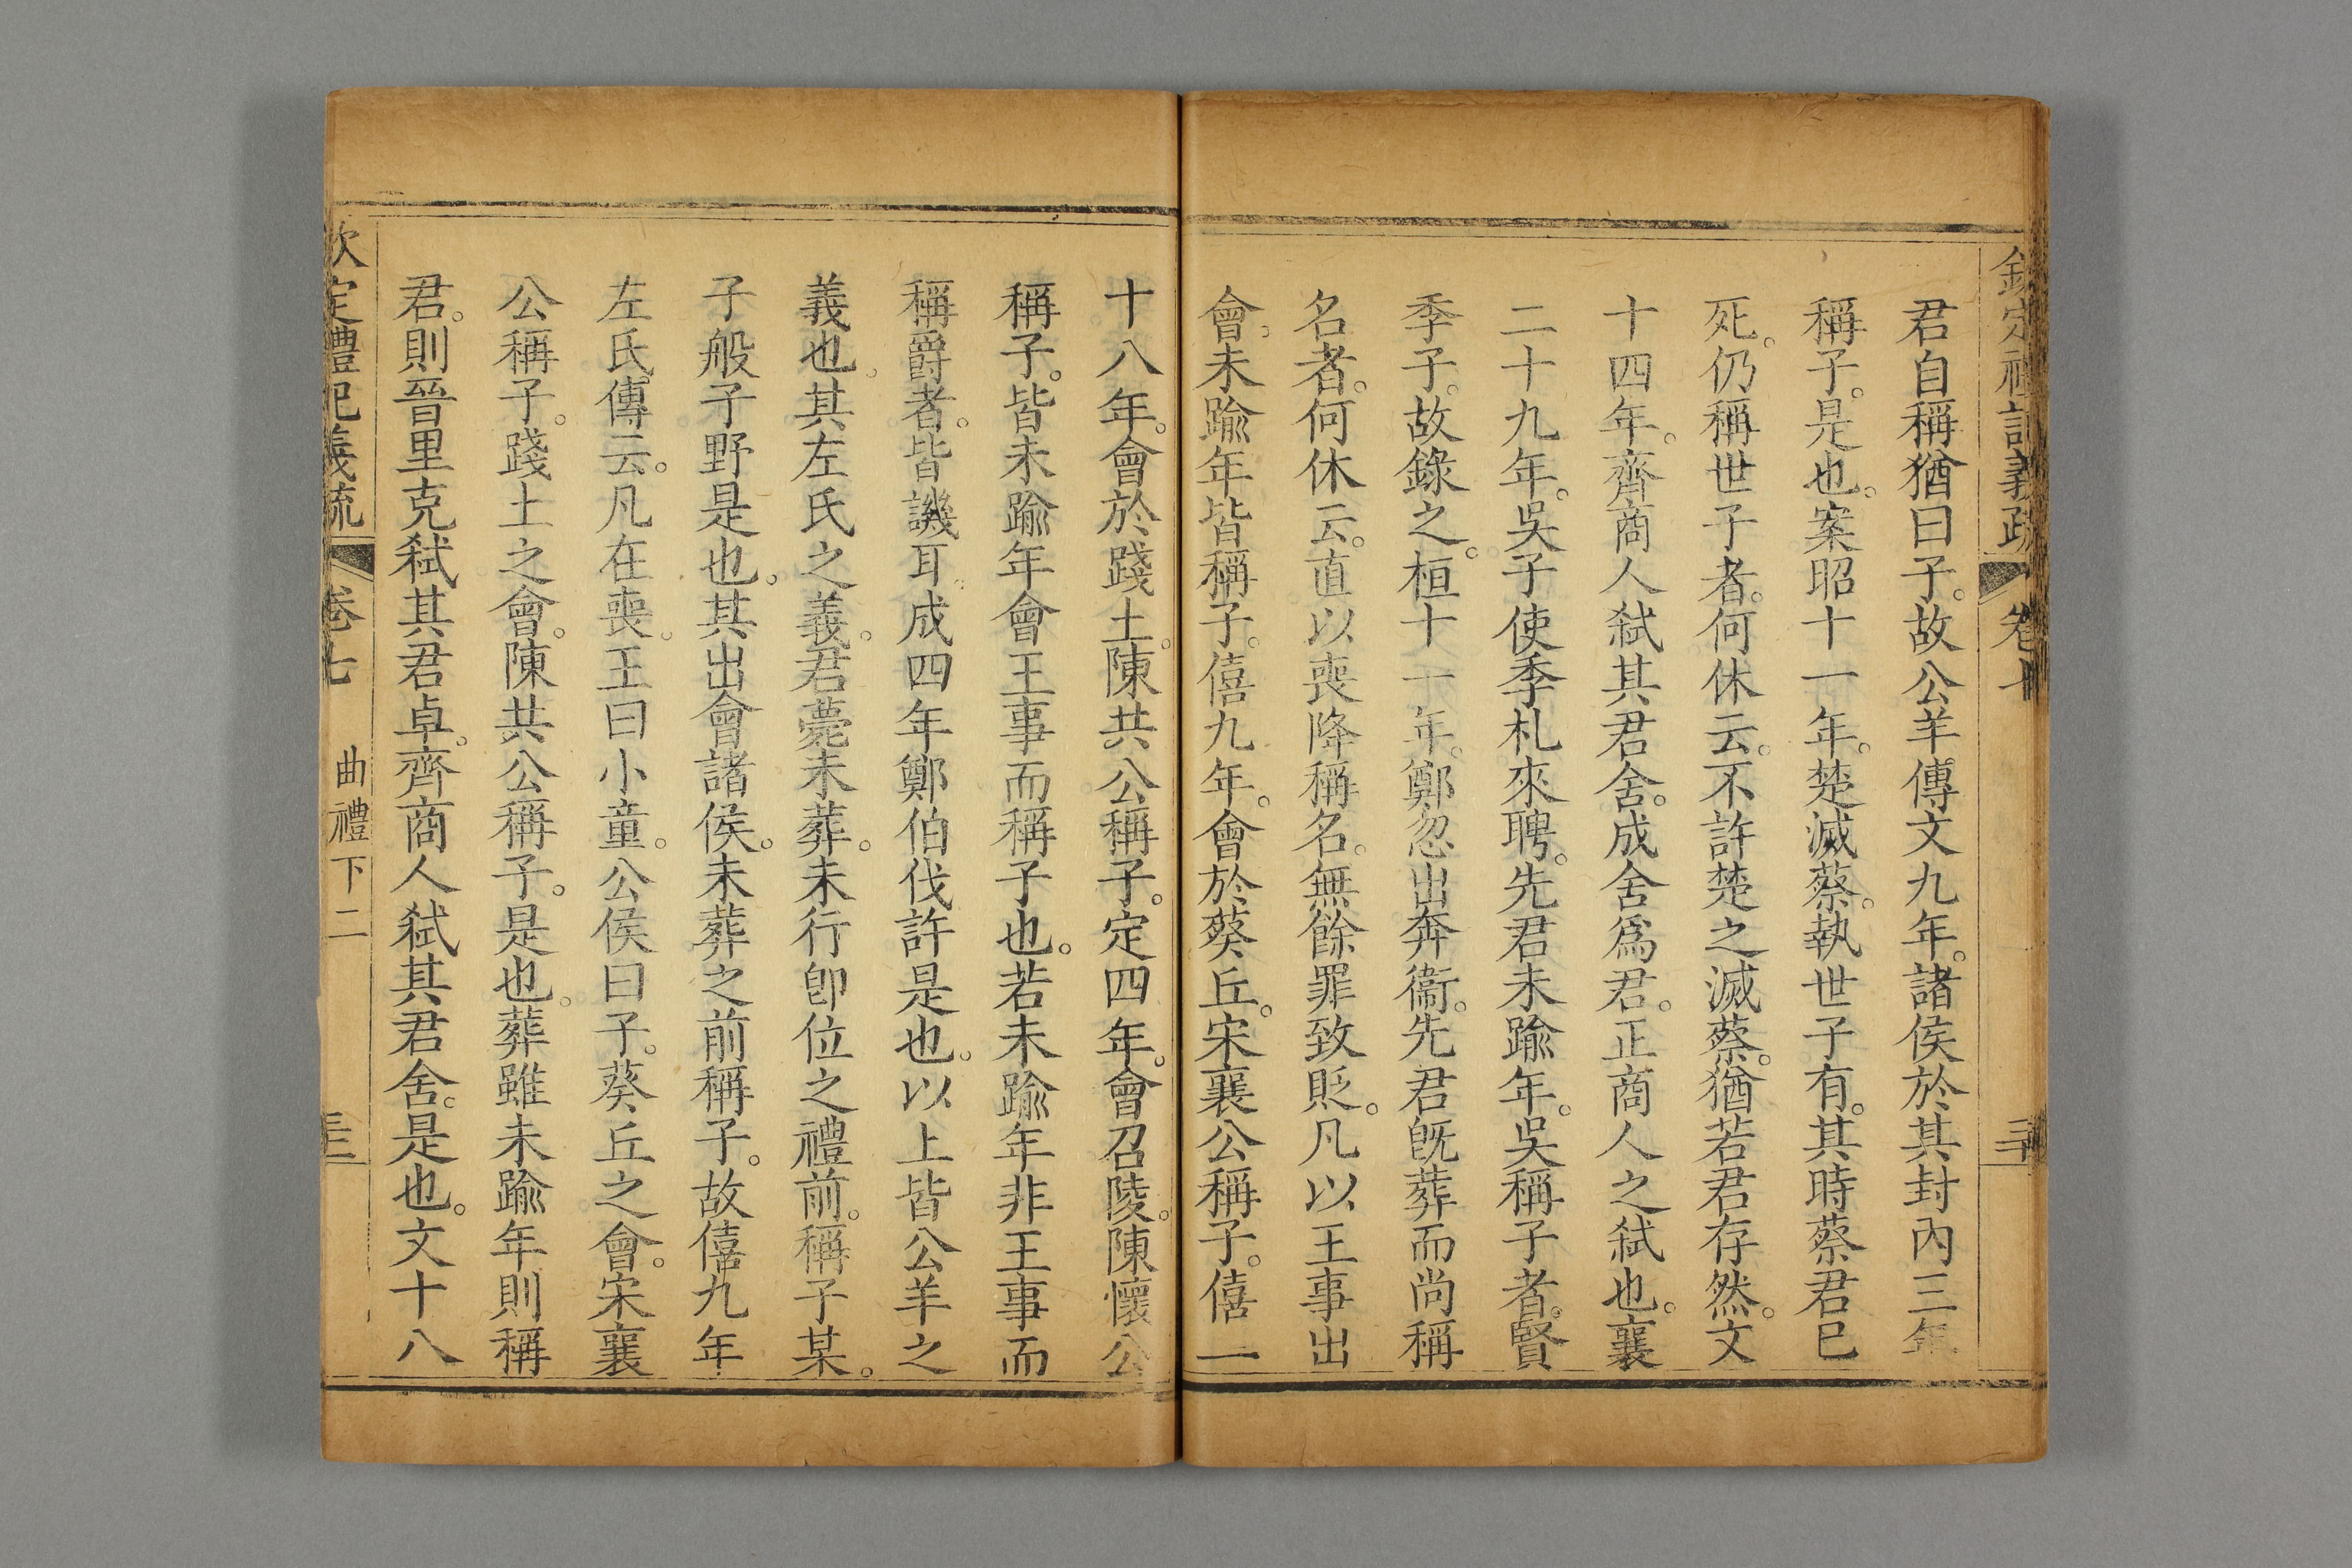 欽定禮記義疏 卷七
君自稱猶曰子。故公羊傳文九年。諸侯於其封內三年
稱子。是也。案昭十一年。楚滅蔡。執世子有。其時蔡君已
死。仍稱世子者。何休云。不許楚之滅蔡。猶若君存然。文
十四年。齊商人弒其君舍。成舍爲君。正商人之弒也。襄
二十九年。吳子使季札來聘。先君未踰年。吳稱子者。賢
季子。故錄之。桓十一年。鄭忽出奔衞。先君旣葬而尚稱
名者。何休云。直以喪降稱名。無餘罪致貶。凡以王事出
會。未踰年皆稱子。僖九年。會於葵丘。宋襄公稱子。僖二
十八年。會於踐土。陳共公稱子。定四年。會召陵。陳懷公
稱子。皆未踰年會王事而稱子也。若未踰年非王事而
稱爵者。皆譏耳。成四年鄭伯伐許是也。以上皆公羊之
義也。其左氏之義。君薨未葬。未行卽位之禮前。稱子某。
子般子野是也。其出會諸侯。未葬之前稱子。故僖九年
左氏傳云。凡在喪。王曰小童。公侯曰子。葵丘之會。宋襄
公稱子。踐土之會。陳共公稱子。是也。葬雖未踰年則稱
君。則晉里克弒其君卓。齊商人弒其君舍。是也。文十八
欽定禮記義疏 卷七 曲禮下二